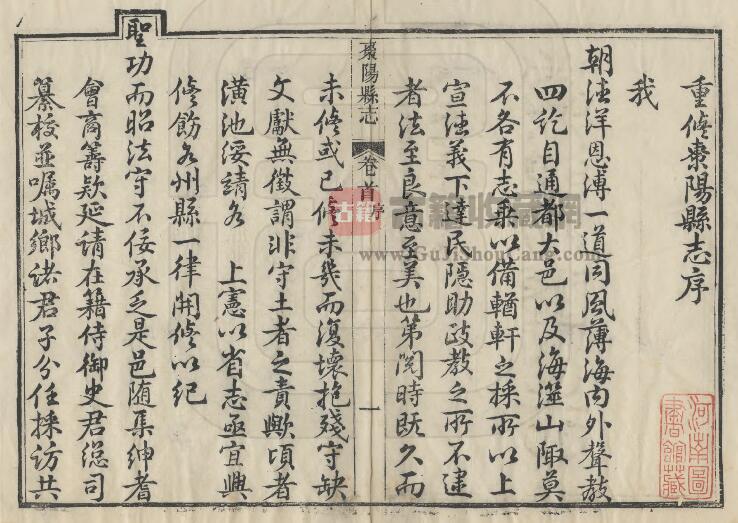 重修棗陽縣志序
我
朝法洋恩溥一道同風薄海內外聲教
四訖自通都大邑以及海澨山陬莫
不各有志乘以備輶軒之採所以上
宣法義下達民隱助政教之所不逮
者法至良意至美也第閱時既久而
棗陽縣志 卷首 序 一
未修或已修未幾而復壞抱殘守缺
文獻無徵謂非守土者之責歟頃者
潢池綏靖各 上憲以省志亟宜興
修飭各州縣一律開修以紀
聖功而昭法守不佞承乏是邑随集紳耆
會商籌欵延請在籍侍御史君總司
纂校並囑城鄉諸君子分任採訪共
河南圖
書館藏
古籍 古籍收藏網
www.GuJiShouCang.com